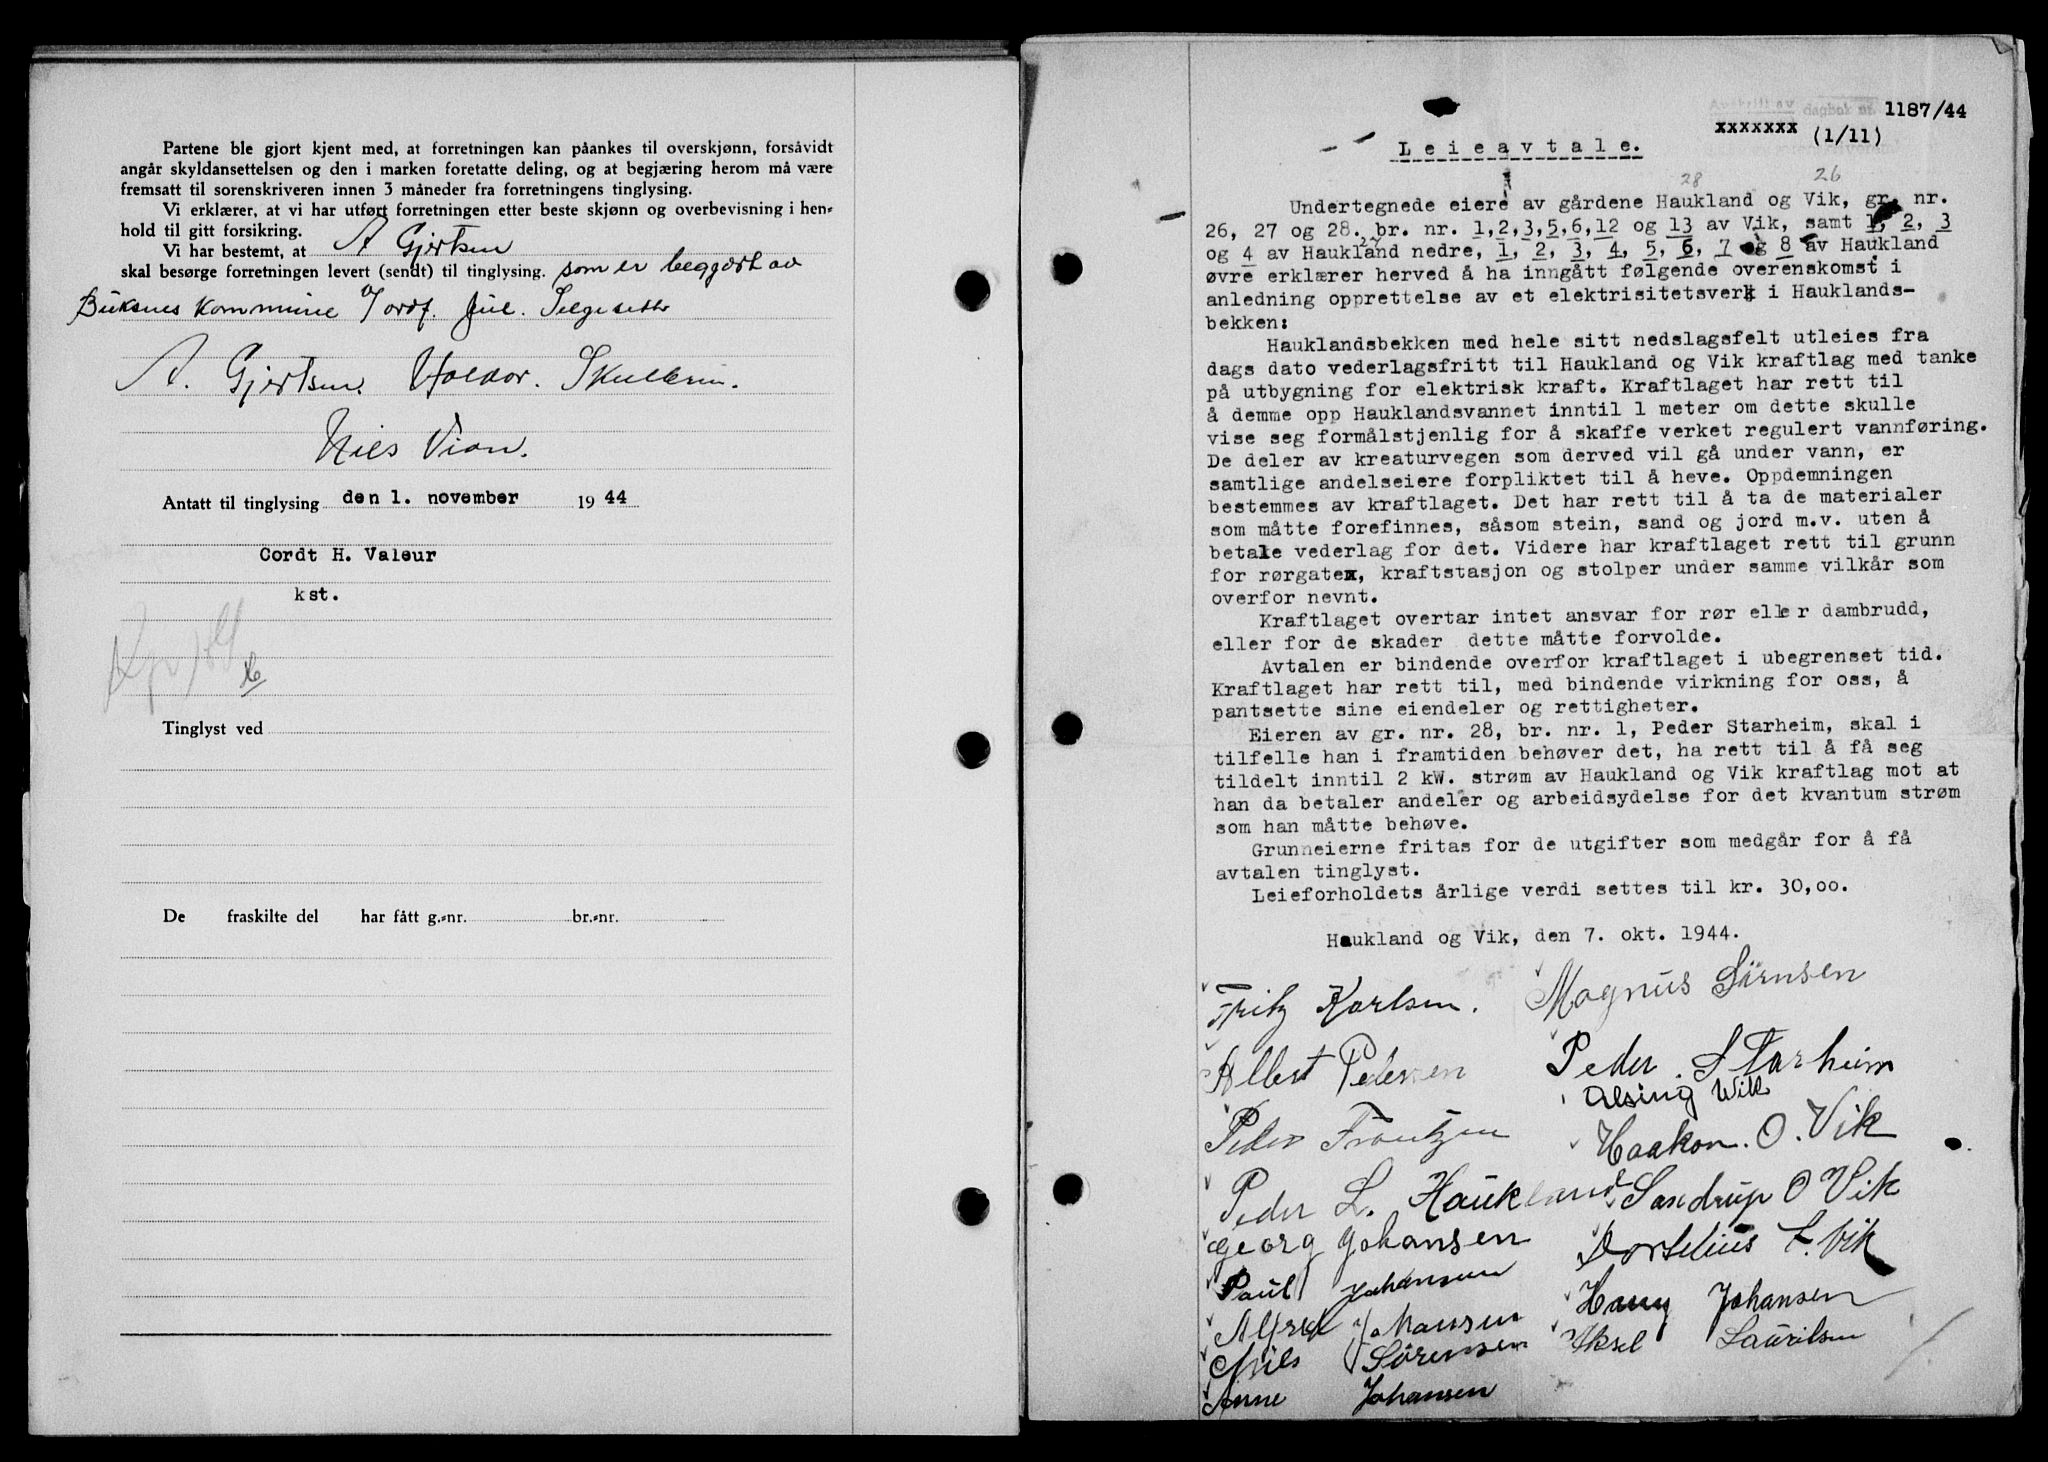 Partene ble gjort kjent med, at forretningen kan påankes til overskjønn, forsåvidt
angår skyldansettelsen og den i marken foretatte deling, og at begjæring herom må være
fremsatt til sorenskriveren innen 3 måneder fra forretningens tinglysing.
Vi erklærer, at vi har utført forretningen etter beste skjønn og overbevisning i hen-
hold til gitt forsikring.
Vi har bestemt, at A Gjertsen
skal besørge forretningen levert (sendt) til tinglysing. som er beggært av
Buksnes kommune v/ ordf. Jul.
A. Gjertsen. Haldor. Skulbru.
Nils Vian.
Antatt til tinglysing den 1. november 1944
Cordt H. Valeur
kst.
Tinglyst ved
De fraskilte del har fått g.-nr. br.-nr.
dagbok nr. 1187/44
xxxxxxx (1/11)
Leieavtale.
28 26
Undertegnede eiere av gårdene Haukland og Vik, gr. nr.
26, 27 og 28. br. nr. 1,2,3,5,6,12 og 13 av Vik, samt 1, 2, 3
27
og 4 av Haukland nedre, 1, 2, 3, 4, 5, 6, 7 og 8 av Haukland
øvre erklærer herved å ha inngått følgende overenskomst i
anledning opprettelse av et elektrisitetsverk i Hauklands-
bekken:
Hauklandsbekken med hele sitt nedslagsfelt utleies fra
dags dato vederlagsfritt til Haukland og Vik kraftlag med tanke
på utbygning for elektrisk kraft. Kraftlaget har rett til
å demme opp Hauklandsvannet inntil 1 meter om dette skulle
vise seg formålstjenlig for å skaffe verket regulert vannføring.
De deler av kreaturvegen som derved vil gå under vann, er
samtlige andelseiere forpliktet til å heve. Oppdemningen
bestemmes av kraftlaget. Det har rett til å ta de materialer
som måtte forefinnes, såsom stein, sand og jord m.v. uten å
betale vederlag for det. Videre har kraftlaget rett til grunn
for rørgatex, kraftstasjon og stolper under samme vilkår som
overfor nevnt.
Kraftlaget overtar intet ansvar for rør eller dambrudd,
eller for de skader dette måtte forvolde.
Avtalen er bindende overfor kraftlaget i ubegrenset tid.
Kraftlaget har rett til, med bindende virkning for oss, å
pantsette sine eiendeler og rettigheter.
Eieren av gr. nr. 28, br. nr. 1, Peder Starheim, skal i
tilfelle han i framtiden behøver det, ha rett til å få seg
tildelt inntil 2 kW. strøm av Haukland og Vik kraftlag mot at
han da betaler andeler og arbeidsydelse for det kvantum strøm
som han måtte behøve.
Grunneierne fritas for de utgifter som medgår for å få
avtalen tinglyst.
Leieforholdets årlige verdi settes til kr. 30,00.
Haukland og Vik, den 7. okt. 1944.
Fritz Karlsen. Magnus Sørnsen
Albert Pedersen Peder Starheim
Alsing Wik
Peder Frantzen Haakon. O. Vik
Peder L. Haukland Sandrup O Vik
Georg Johansen Dortelius L. Vik
Paul Johansen Harry Johansen
Alfred Johansen
Nils Sørensen Aksel Lauritsen
Anne Johansen